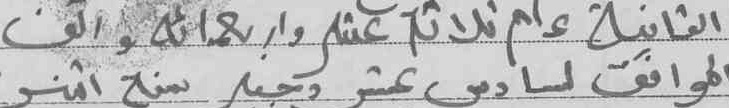 الثانية عام ثلاثة عشر وأربعمائة وألف
الموافق لسادس عشر دجنبر سنة اثنين